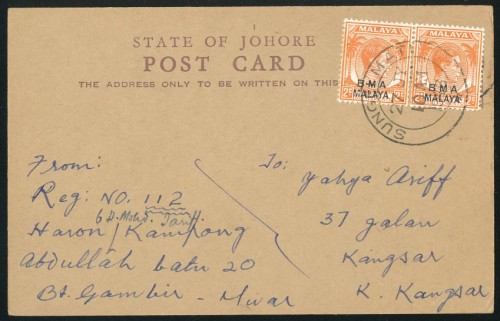 STATE OF JOHORE
POST CARD
THE ADDRESS ONLY TO BE WRITTEN ON THIS
MALAYA MALAYA
BMA BMA
MALAYA MALAYA
SUNG MATI
27
From:
Reg: NO. 112
Haron / Kampong
Abdullah batu 20
Bt. Gambir - Muar
To:
Yahya Ariff
37 Jalan
Kangsar
K. Kangsar